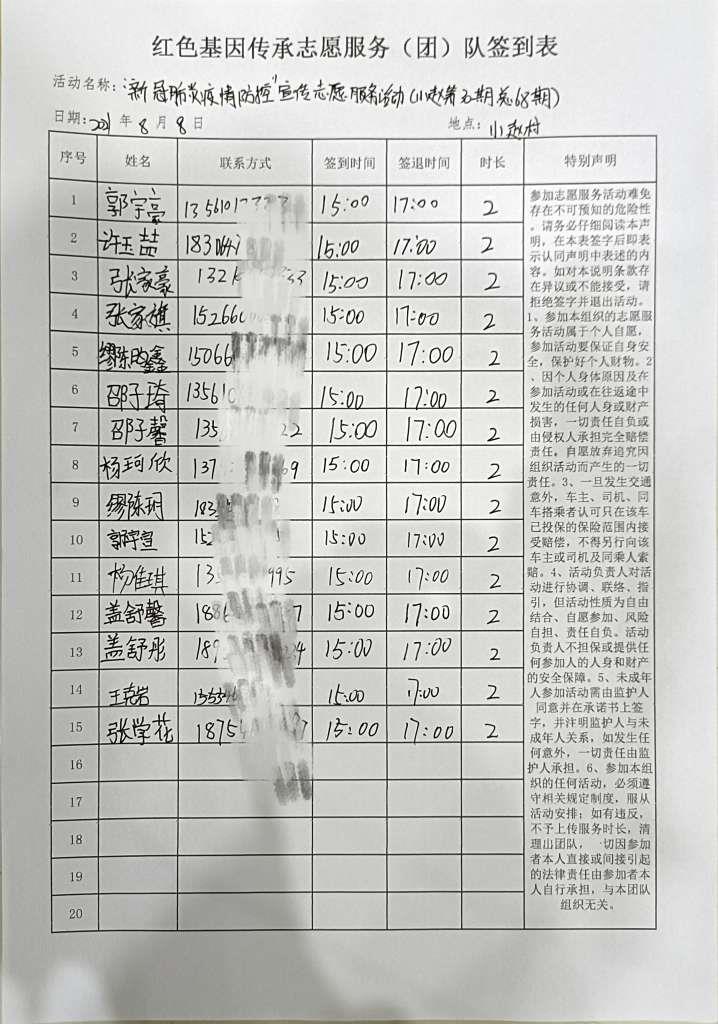 红色基因传承志愿服务（团）队签到表
活动名称："新冠肺炎疫情防控"宣传志愿服务活动(小赵第五期总68期)
日期：2021年8月8日 地点：小赵村
序号 姓名 联系方式 签到时间 签退时间 时长 特别声明
1 郭宇豪 1356101 15:00 17:00 2
2 许玉喆 183 15:00 17:00 2
3 张家豪 132 15:00 17:00 2
4 张家旗 15266 15:00 17:00 2
5 缪陈昀鑫 15066 15:00 17:00 2
6 邵子琦 135610 15:00 17:00 2
7 邵子馨 135 22 15:00 17:00 2
8 杨珂欣 137 69 15:00 17:00 2
9 缪陈玥 183 15:00 17:00 2
10 郭宇萱 152 15:00 17:00 2
11 杨佳琪 13 995 15:00 17:00 2
12 盖舒馨 188 7 15:00 17:00 2
13 盖舒彤 189 4 15:00 17:00 2
14 王克岩 15:00 17:00 2
15 张学花 1875 7 15:00 17:00 2
16
17
18
19
20
参加志愿服务活动难免
存在不可预知的危险性
。请务必仔细阅读本声
明，在本表签字后即表
示认同声明中表述的内
容。如对本说明条款存
在异议或不能接受，请
拒绝签字并退出活动。
1、参加本组织的志愿服
务活动属于个人自愿，
参加活动要保证自身安
全，保护好个人财物。2
、因个人身体原因及在
参加活动或在往返途中
发生的任何人身或财产
损害，一切责任自负或
由侵权人承担完全赔偿
责任，自愿放弃追究因
组织活动而产生的一切
责任。3、一旦发生交通
意外，车主、司机、同
车搭乘者认可只在该车
已投保的保险范围内接
受赔偿，不得另行向该
车主或司机及同乘人索
赔。4、活动负责人对活
动进行协调、联络、指
引，但活动性质为自由
结合、自愿参加、风险
自担、责任自负。活动
负责人不担保或提供任
何参加人的人身和财产
的安全保障。5、未成年
人参加活动需由监护人
同意并在承诺书上签
字，并注明监护人与未
成年人关系，如发生任
何意外，一切责任由监
护人承担。6、参加本组
织的任何活动，必须遵
守相关规定制度，服从
活动安排；如有违反，
不予上传服务时长，清
理出团队，一切因参加
者本人直接或间接引起
的法律责任由参加者本
人自行承担，与本团队
组织无关。